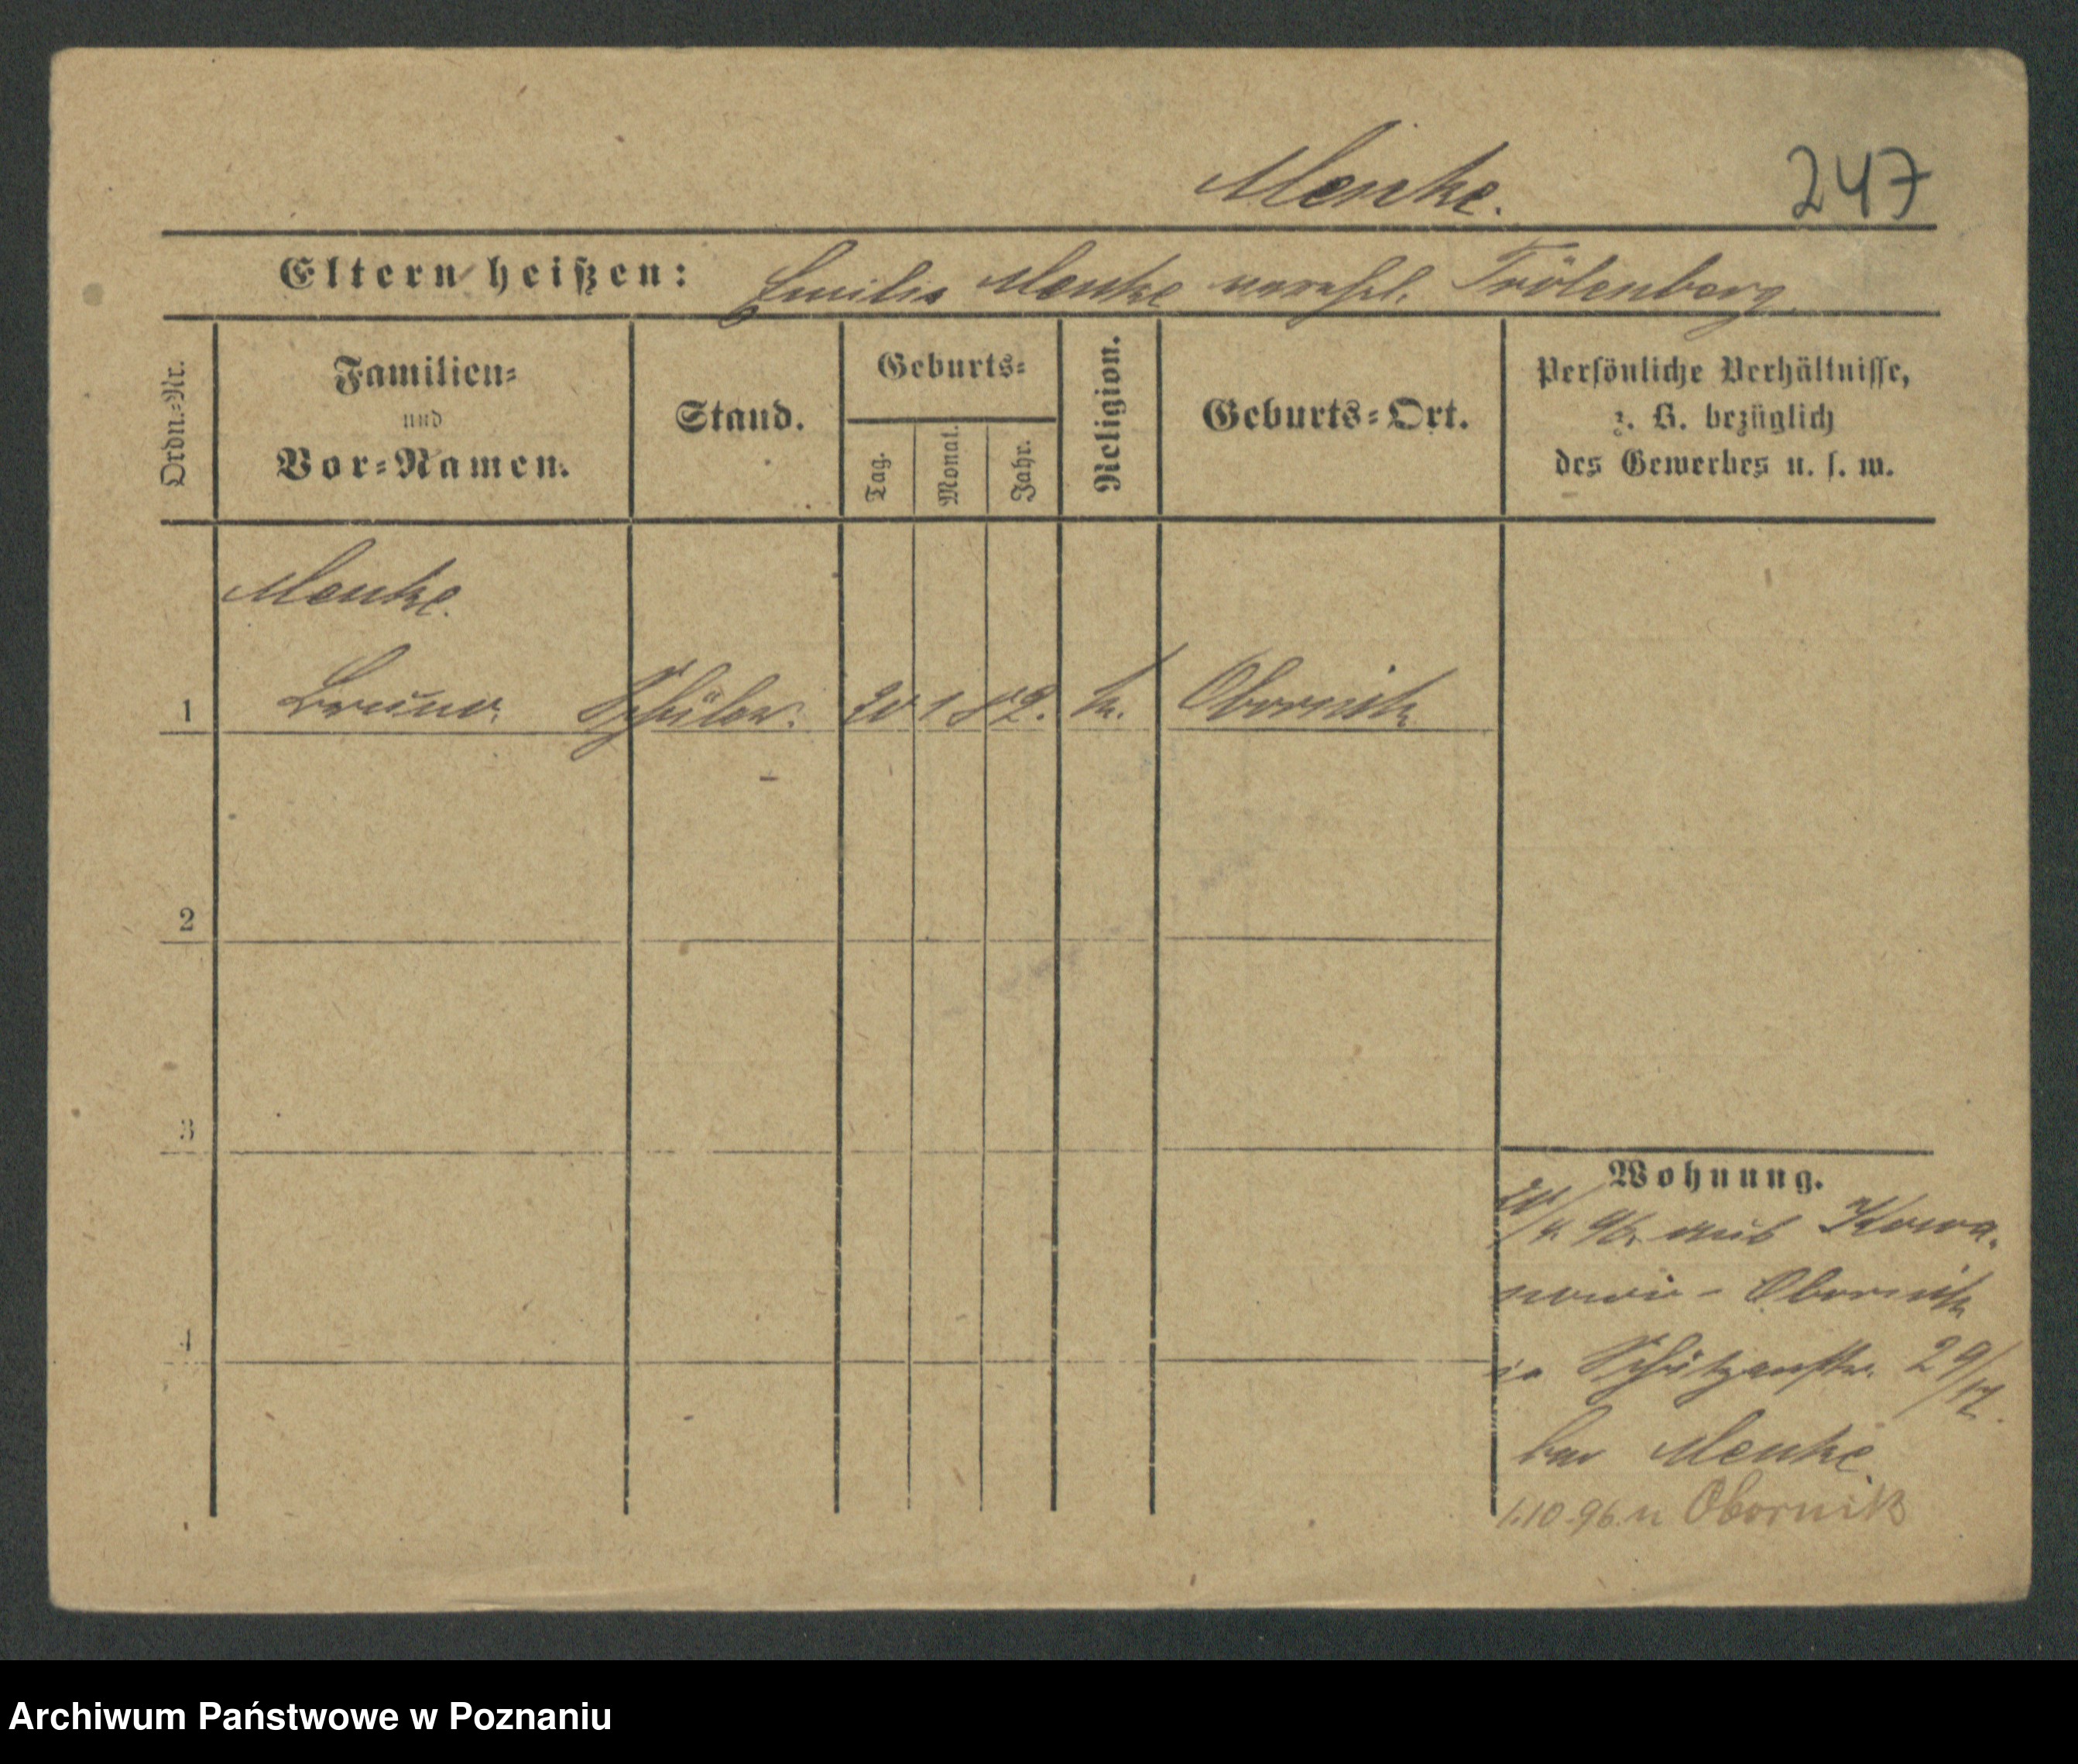 Menke.
247
Eltern heißen: Emilie Menke verehel. Trölenberg
Ordn.-Nr.
Familien-
und
Vor-Namen.
Stand.
Geburts-
Tag.
Monat.
Jahr.
Religion.
Geburts-Ort.
Persönliche Verhältnisse,
z. B. bezüglich
des Gewerbes u. s. w.
Menke.
1 Bruno. Schüler. 20 1 82. k. Obornik
2
3
4
Wohnung.
20/4. 96. aus Kowa-
nowie - Obornik
in Schützenstr. 29/
bei Menke.
1.10.96. n Obornik
Archiwum Państwowe w Poznaniu